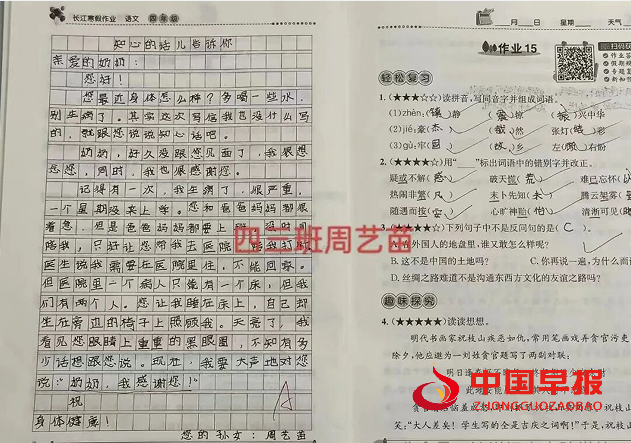 长江寒假作业 语文 四年级
知心的话儿告诉你
亲爱的奶奶:
您好!
您最近身体怎么样?多喝一些水,
别生病了。其实这次写信我也没什么写
的,就跟您说说知心话吧。
奶奶,好久没跟您见面了,我很想
您,同时,我也很感谢您。
记得有一次,我生病了,很严重,
一个星期没来上学。您和爸爸妈妈都很
着急,但是爸爸妈妈都要上班,没时间
陪我,只好让您带我去医院
医生说我需要在医院里住,不能回家。
但医院里一个病人只能有一个床,但我
们有两个人。您让我睡在床上,自己却
坐在旁边的椅子上照顾我。天亮了,我
看见您眼睛上重重的黑眼圈,不知有多
少话想跟您说。现在,我要大声地对您
说:“奶奶,我感谢您!”
祝
身体健康!
您的孙女:周艺苗
A
四三班周艺苗
月 日 星期 天气
作业15
轻松复习
1.(★★★☆☆)读拼音,写同音字并组成词语。
(1)zhèn:(镇)静 (震)惊 (振)兴中华
(2)jié:豪(杰) (截)然 张灯(结)彩
(3)gù:牢(固) (故)乡 左(顾)右盼
2.(★★★☆☆)用“ ”标出词语中的错别字并改正。
疑或不解(惑) 破天慌(荒) 难已忘怀
热闹非繁(凡) 末卜先知(未) 腾云架雾
随遇而按(安) 心旷神贻(怡) 清淅可见
3.(★★★★☆)下列句子中不是反问句的是( C )。
A.在外国人的地盘里,谁又敢怎么样呢?
B.这不是中国的土地吗? C.你再说一遍,为什么而
D.丝绸之路难道不是沟通东西方文化的友谊之路吗?
趣味探究
4.(★★★★★)读读想想。
明代书画家祝枝山疾恶如仇,常用笔画戏弄贪官污吏
除夕,他应邀为一刘姓贪官题写了两副对联:
明日逢春
此地
贪官
笑:“大人差矣!学生写的全是吉庆之词啊!”于是,祝枝
中国早报
ZHONGGUOZAOBAO